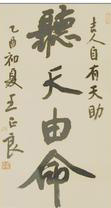 吉人自有天助
聽天由命
乙酉初夏王正良